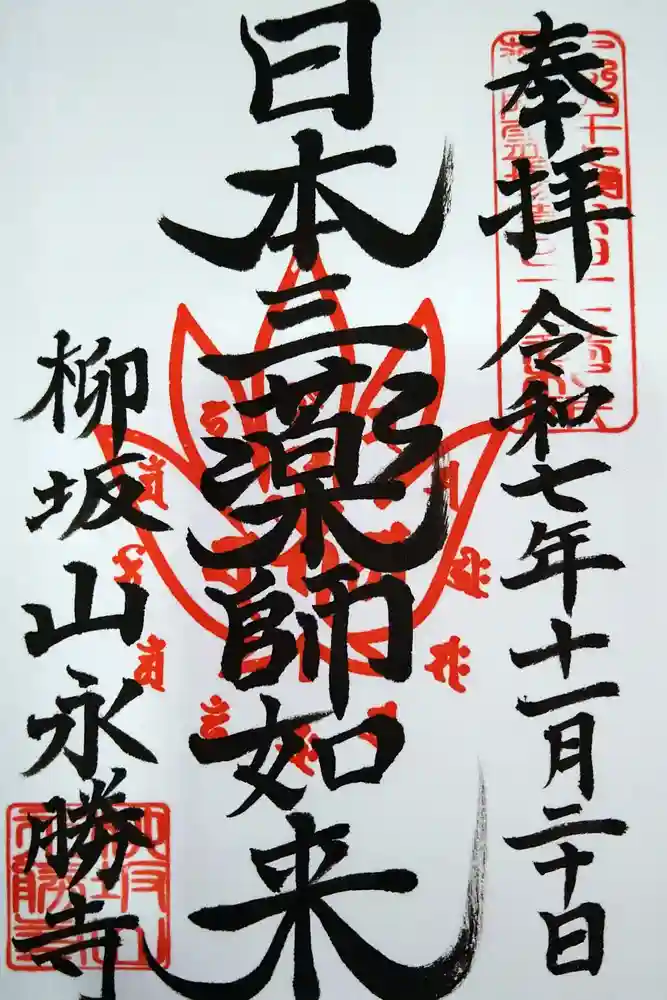 奉拝 令和七年十一月二十日
日本三薬師如来
柳坂山永勝寺